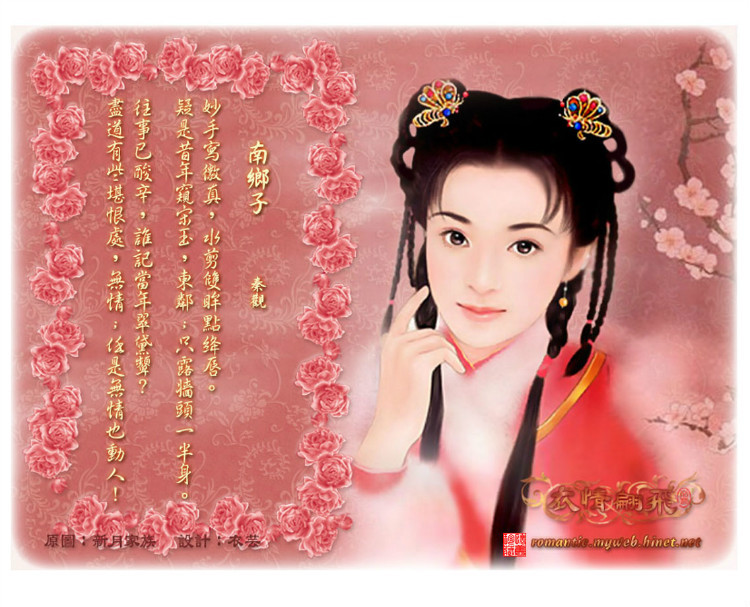 南鄉子
秦觀
妙手寫徽真，水剪雙眸點絳唇。
疑是昔年窺宋玉，東鄰；只露牆頭一半身。
往事已酸辛，誰記當年翠黛顰？
盡道有些堪恨處，無情；任是無情也動人！
原圖：新月家族　設計：衣芸
衣情翩飛
romantic.myweb.hinet.net